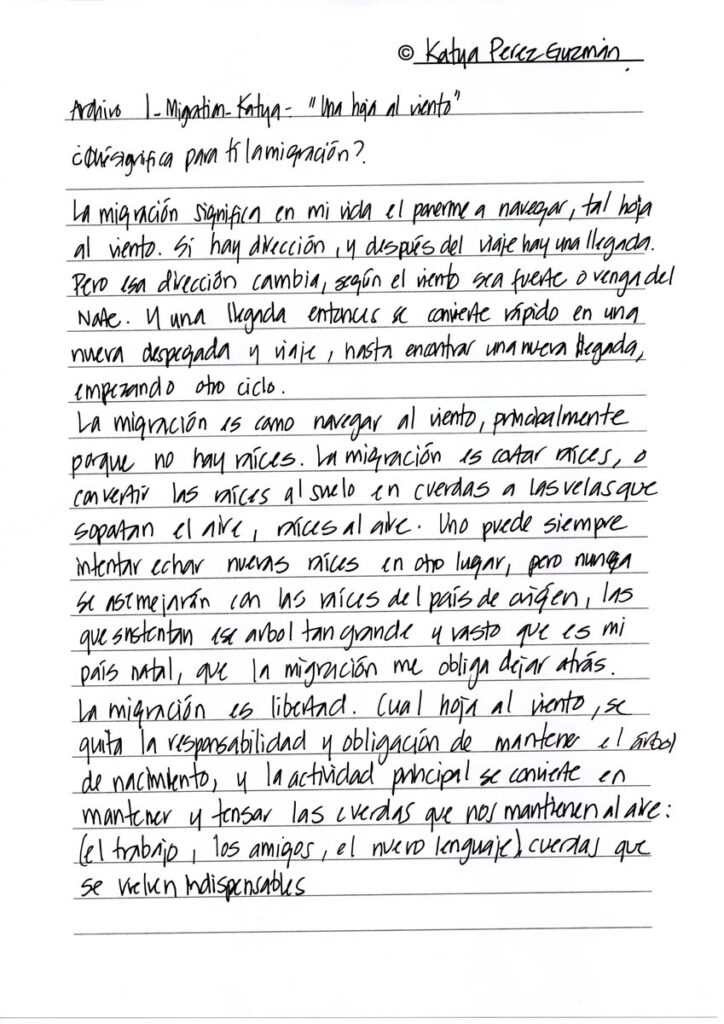 © Katya Perez Guzmán
Archivo 1-Migration-Katya- "Una hoja al viento"
¿Qué significa para tí la migración?
La migración significa en mi vida el ponerme a navegar, tal hoja
al viento. Si hay dirección, y después del viaje hay una llegada.
Pero esa dirección cambia, según el viento sea fuerte o venga del
Norte. Y una llegada entonces se convierte rápido en una
nueva despegada y viaje, hasta encontrar una nueva llegada,
empezando otro ciclo.
La migración es como navegar al viento, principalmente
porque no hay raíces. La migración es cortar raíces, o
convertir las raíces al suelo en cuerdas a las velas que
soportan el aire, raíces al aire. Uno puede siempre
intentar echar nuevas raíces en otro lugar, pero nunca
se asemejarán con las raíces del país de origen, las
que sustentan ese arbol tan grande y vasto que es mi
país natal, que la migración me obliga dejar atrás.
La migración es libertad. Cual hoja al viento, se
quita la responsabilidad y obligación de mantener el árbol
de nacimiento, y la actividad principal se convierte en
mantener y tensar las cuerdas que nos mantienen al aire:
(el trabajo, los amigos, el nuevo lenguaje), cuerdas que
se vuelven indispensables